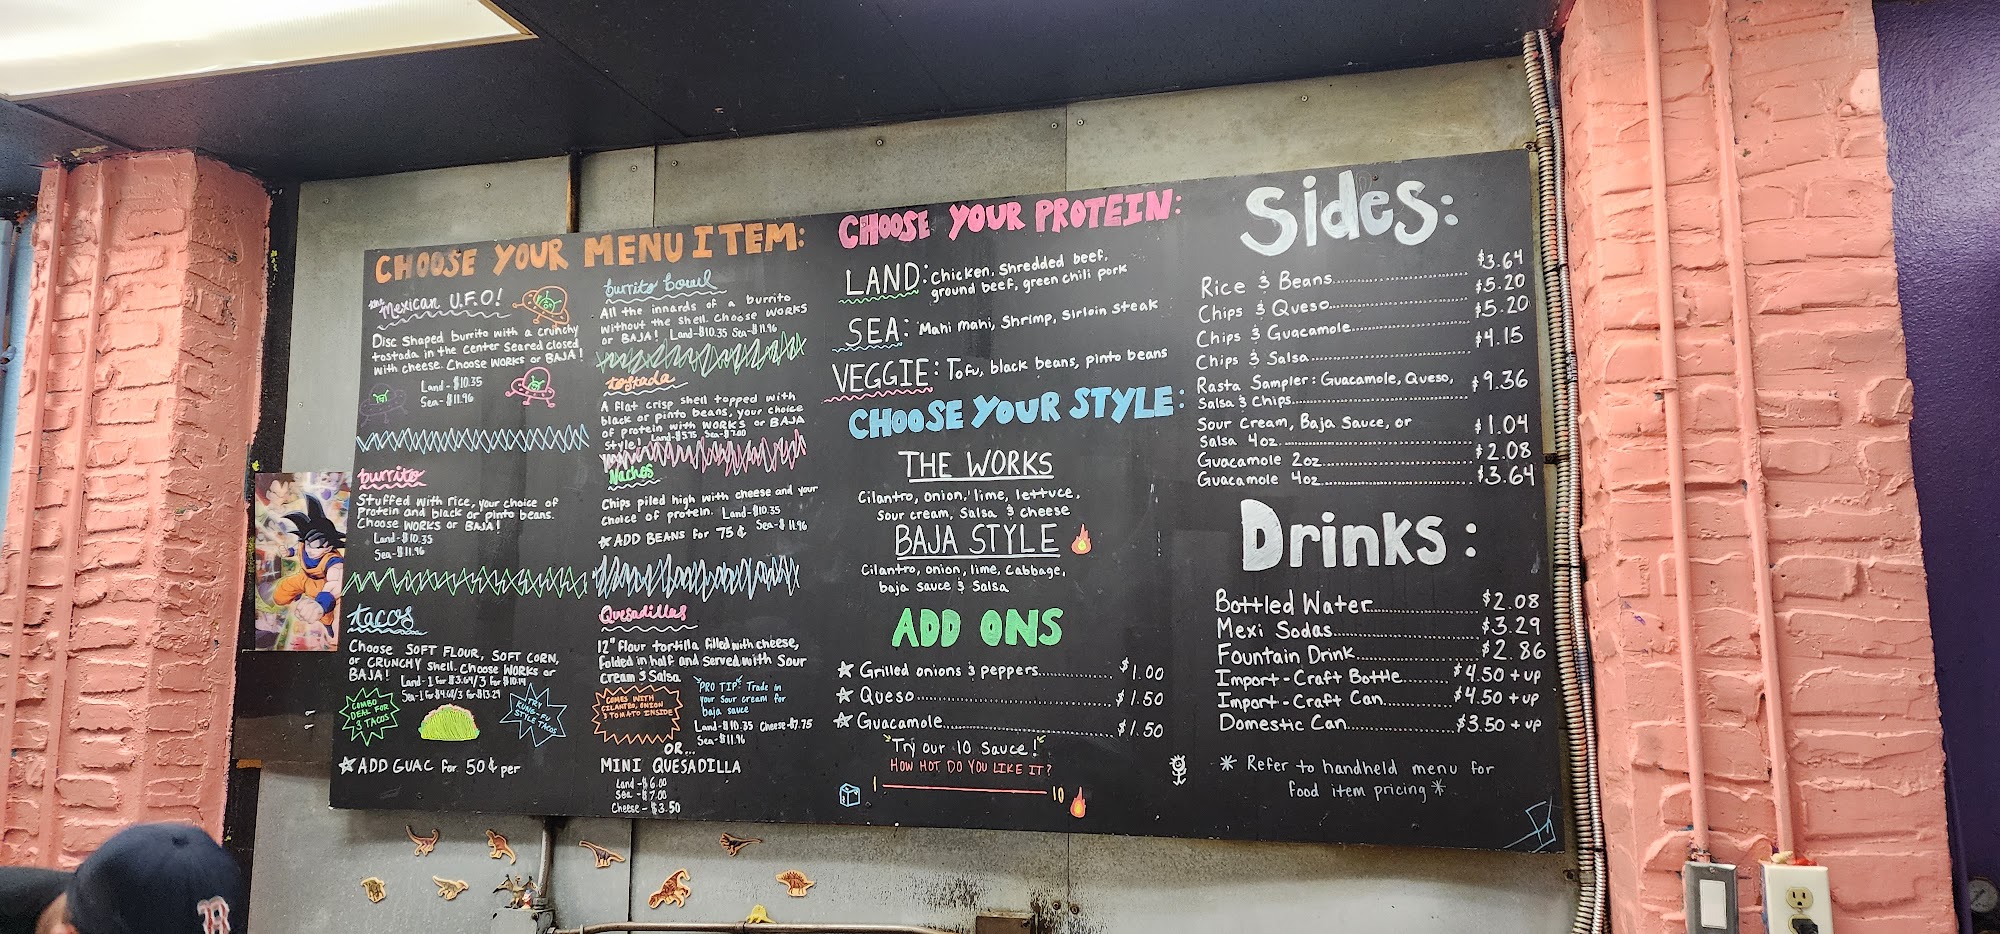 CHOOSE YOUR MENU ITEM:
the Mexican U.F.O!
Disc Shaped burrito with a crunchy
tostada in the center Seared closed
with cheese. Choose WORKS or BAJA!
Land - $10.35
Sea - $11.96
burrito
Stuffed with rice, your choice of
Protein and black or pinto beans.
Choose WORKS or BAJA!
Land - $10.35
Sea - $11.96
tacos
Choose SOFT FLOUR, SOFT CORN,
or CRUNCHY shell. Choose WORKS or
BAJA! Land - 1 for $3.64/3 for $10.14
Sea - 1 for $4.68/3 for $13.29
COMBO
DEAL FOR
3 TACOS!
TRY
KUNG-FU
STYLE TACOS
☆ ADD GUAC for 50¢ per
burrito bowl
All the innards of a burrito
without the shell. Choose WORKS
or BAJA! Land - $10.35 Sea - $11.96
tostada
A flat crisp shell topped with
black or pinto beans, your choice
of protein with WORKS or BAJA
Style! Land - $5.75 Sea - $7.00
Nachos
Chips piled high with cheese and your
choice of protein. Land - $10.35
Sea - $11.96
☆ ADD BEANS for 75¢
Quesadillas
12" flour tortilla filled with cheese,
folded in half and Served with Sour
Cream & Salsa
COMES WITH
CILANTRO, ONION
& TOMATO INSIDE
PRO TIP: Trade in
your Sour cream for
baja sauce
Land - $10.35 Cheese - $7.75
Sea - $11.96
OR...
MINI QUESADILLA
Land - $6.00
Sea - $7.00
Cheese - $3.50
CHOOSE YOUR PROTEIN:
LAND: Chicken, Shredded beef,
ground beef, green chili pork
SEA: Mahi mahi, Shrimp, Sirloin Steak
VEGGIE: Tofu, black beans, pinto beans
CHOOSE YOUR STYLE:
THE WORKS
Cilantro, onion, lime, lettuce,
Sour cream, Salsa & cheese
BAJA STYLE
Cilantro, onion, lime, Cabbage,
baja sauce & Salsa
ADD ONS
☆ Grilled onions & peppers........ $1.00
☆ Queso........ $1.50
☆ Guacamole........ $1.50
Try our 10 Sauce!
HOW HOT DO YOU LIKE IT?
1 10
Sides:
Rice & Beans........ $3.64
Chips & Queso........ $5.20
Chips & Guacamole........ $5.20
Chips & Salsa........ $4.15
Rasta Sampler: Guacamole, Queso,
Salsa & Chips........ $9.36
Sour Cream, Baja Sauce, or
Salsa 4oz........ $1.04
Guacamole 2oz........ $2.08
Guacamole 4oz........ $3.64
Drinks:
Bottled Water........ $2.08
Mexi Sodas........ $3.29
Fountain Drink........ $2.86
Import-Craft Bottle........ $4.50 + up
Import-Craft Can........ $4.50 + up
Domestic Can........ $3.50 + up
* Refer to handheld menu for
food item pricing *
B